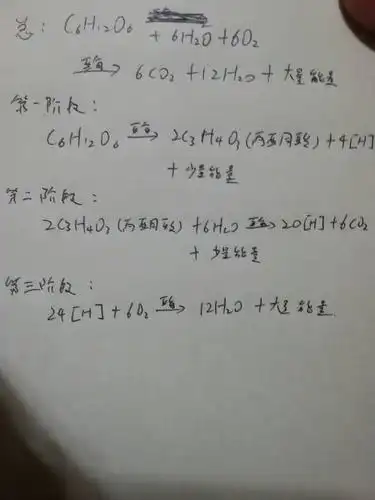 总: C6H12O6 + 6H2O + 6O2
酶→ 6CO2 + 12H2O + 大量能量
第一阶段:
C6H12O6 酶→ 2C3H4O3 (丙酮酸) + 4[H]
+ 少量能量
第二阶段:
2C3H4O3 (丙酮酸) + 6H2O 酶→ 20[H] + 6CO2
+ 少量能量
第三阶段:
24[H] + 6O2 酶→ 12H2O + 大量能量